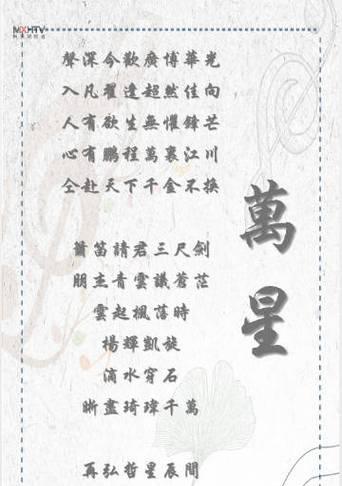 MXHTV
萬星
聲深今歡廣博華光
入凡翟逹超然佳向
人有欲生無懼鋒芒
心有鵬程萬裏江川
仝赴天下千金不换
簫笛請君三尺劍
朋杰青雲議蒼茫
雲起楓落時
楊輝凱旋
滴水穿石
晰盡琦瑋千萬
再弘哲星辰間